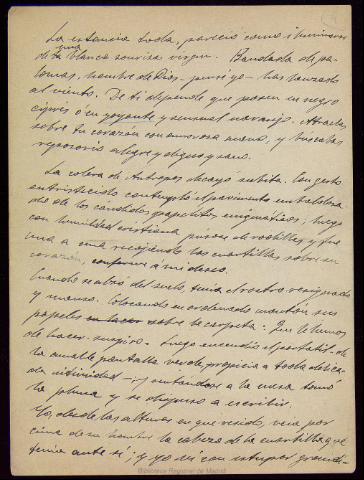 La estancia toda, pareció como iluminarse
de tu blanca sonrisa virgen. Bandada de pa-
una
lomas, hombre de Dios - pensé yo - has lanzado
al viento. De ti depende que posen en negro
ciprés ó en yoyante y sensual naranjo. Atráelas
sobre tu corazón con amorosa mano, y búscales
reposorio alegre y digno y sano.
La colera de Antropos decayó subita. Con gesto
entristecido contempló el pavimento
de de los cándidos papelitos enigmáticos; luego
con humildad cristiana púsose de rodillas y fue
una a una recogiendo las cuartillas sobre su
corazón, conforme á mi deseo.
Cuando se alzó del suelo, tenía el rostro resignado
y manso. Colocando en ordenado montón sus
papeles en la sobre su carpeta:
de hacer. suspiró. Luego encendió el portatil - de
la amable pantalla verde, propicia a toda delica-
da intimidad - y sentandose a la mesa tomó
la pluma y se dispuso a escribir.
Yo, desde las alturas en que resido, veía por
cima de su hombro la cabeza de la cuartilla que
tenía ante sí: y yo vi con estupor grandí-
Biblioteca Regional de Madrid